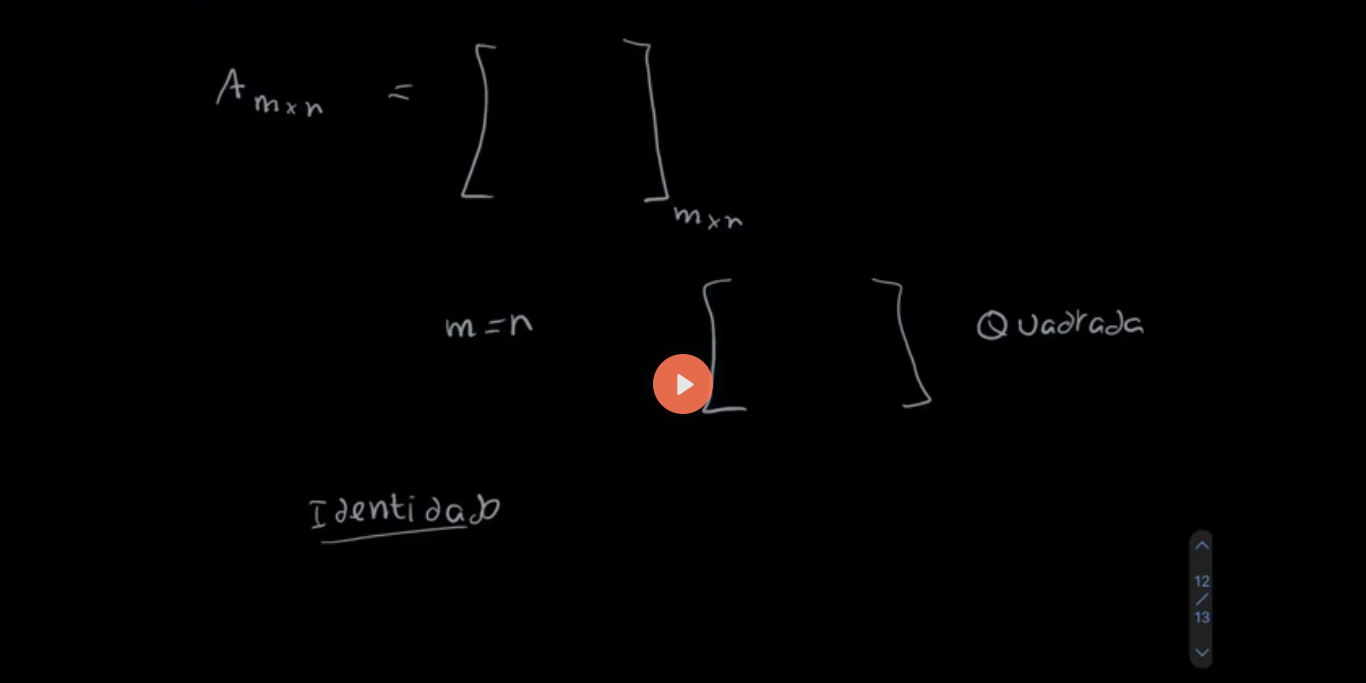 A m×n = [ ] m×n
m=n [ ] Quadrada
Identidade
12
/
13